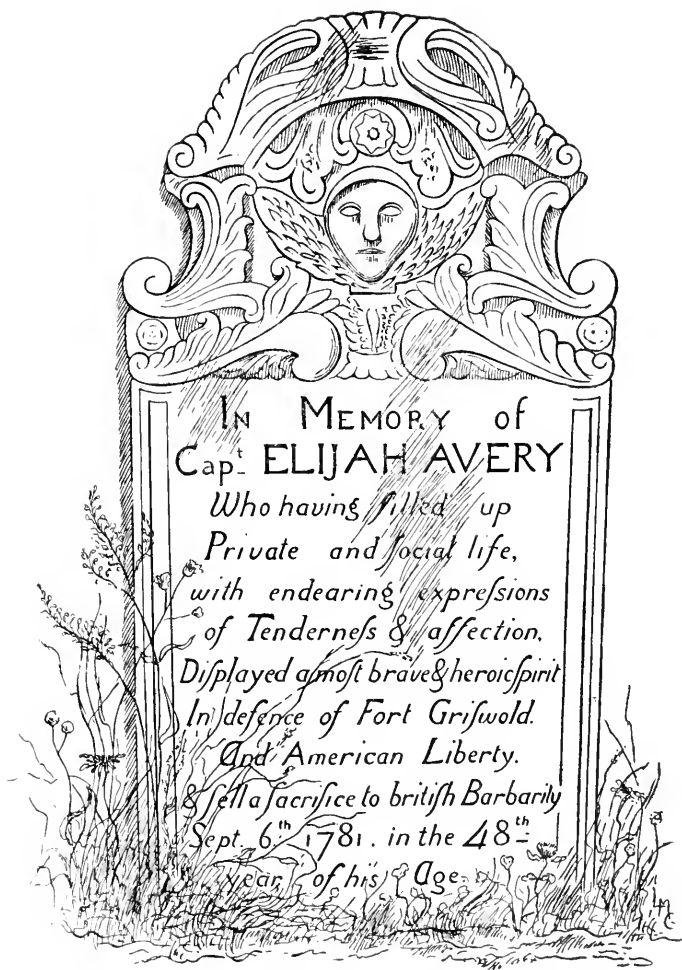 In Memory of
Capt ELIJAH AVERY
Who having filled up
Private and ſocial life,
with endearing expreſsions
of Tenderneſs & affection,
Diſplayed a moſt brave & heroic ſpirit
In defence of Fort Griſwold.
And American Liberty.
& fell a ſacrifice to britiſh Barbarity
Sept. 6th 1781. in the 48th
year of his Age.